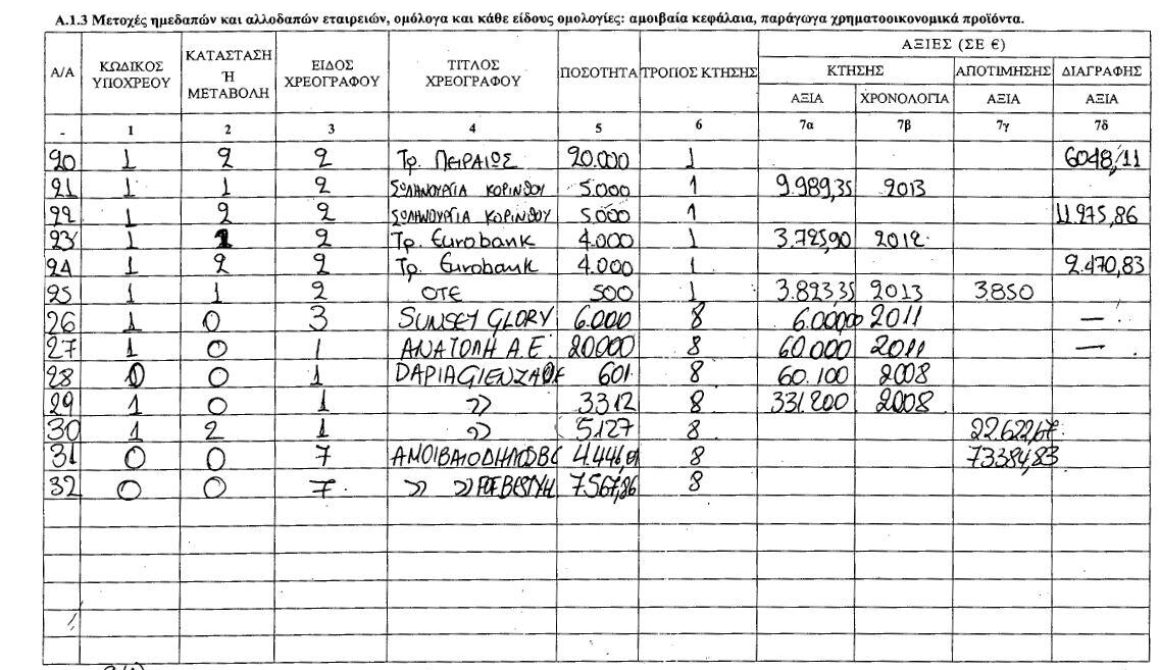 Α.1.3 Μετοχές ημεδαπών και αλλοδαπών εταιρειών, ομόλογα και κάθε είδους ομολογίες: αμοιβαία κεφάλαια, παράγωγα χρηματοοικονομικά προϊόντα.
Α/Α ΚΩΔΙΚΟΣ ΥΠΟΧΡΕΟΥ ΚΑΤΑΣΤΑΣΗ Ή ΜΕΤΑΒΟΛΗ ΕΙΔΟΣ ΧΡΕΟΓΡΑΦΟΥ ΤΙΤΛΟΣ ΧΡΕΟΓΡΑΦΟΥ ΠΟΣΟΤΗΤΑ ΤΡΟΠΟΣ ΚΤΗΣΗΣ ΑΞΙΕΣ (ΣΕ €)
ΚΤΗΣΗΣ ΑΠΟΤΙΜΗΣΗΣ ΔΙΑΓΡΑΦΗΣ
ΑΞΙΑ ΧΡΟΝΟΛΟΓΙΑ ΑΞΙΑ ΑΞΙΑ
- 1 2 3 4 5 6 7α 7β 7γ 7δ
20 1 2 2 Τρ. ΠΕΙΡΑΙΩΣ 20.000 1 6048,11
21 1 1 2 ΣΩΛΗΝΟΥΡΓΙΑ ΚΟΡΙΝΘΟΥ 5000 1 9.989,35 2013
22 1 2 2 ΣΩΛΗΝΟΥΡΓΙΑ ΚΟΡΙΝΘΟΥ 5.000 1 11.975,86
23 1 1 2 Τρ. Eurobank 4.000 1 3.725,90 2012
24 1 2 2 Τρ. Eurobank 4.000 1 2.470,83
25 1 1 2 ΟΤΕ 500 1 3.823,35 2013 3.850
26 1 0 3 SUNSET GLORY 6.000 8 2011 —
27 1 0 1 ΑΝΑΤΟΛΗ Α.Ε. 20000 8 60.000 2011 —
28 0 1 601 8 60.100 2008
29 1 0 1 » 3312 8 331.200 2008
30 1 2 1 » 5.127 8 22.622,67
31 0 0 7 8 73384,83
32 0 0 7 » » 7.567,86 8